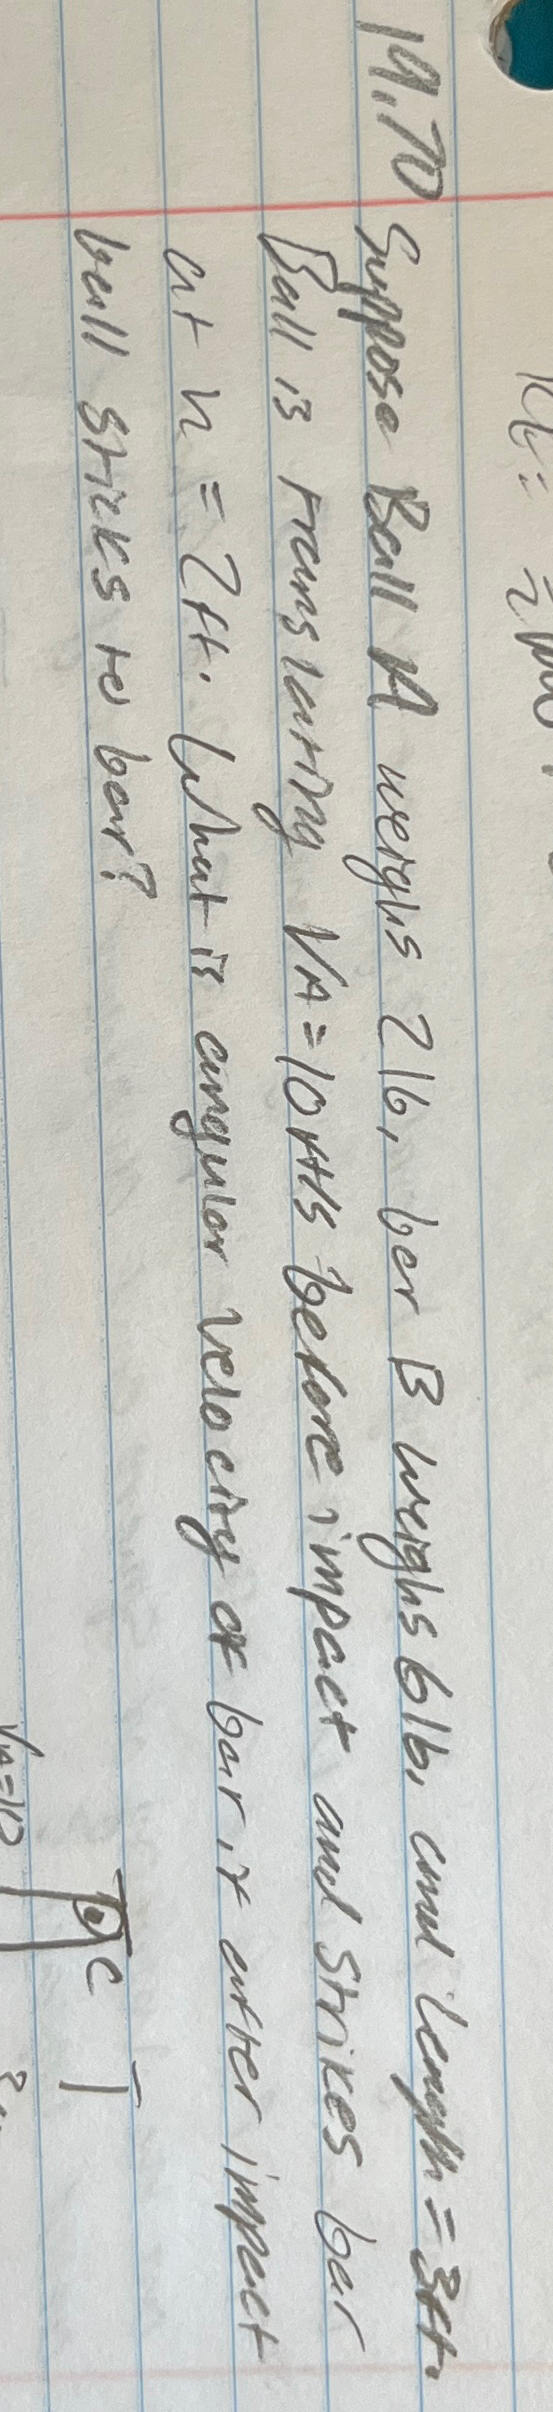 19.70 Suppose Ball A weighs 2 lb, bar B weighs 6 lb, and length = 3 ft.
Ball is translating VA = 10 ft/s before impact and strikes bar
at h = 2 ft. What is angular velocity of bar if after impact
ball sticks to bar?
C
VA = 10